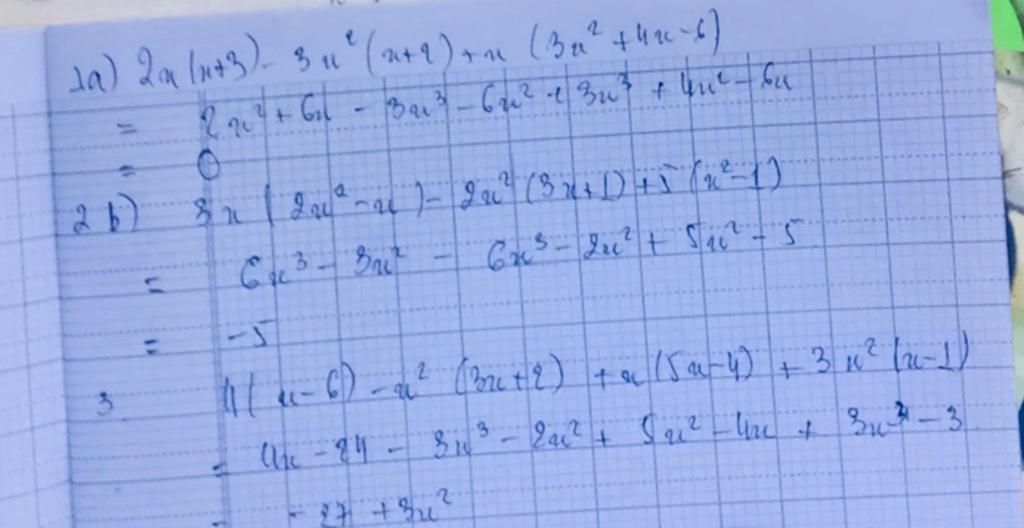 1a) 2x(x+3) - 3x²(x+2) + x (3x² + 4x - 6)
= 2x² + 6x - 3x³ - 6x² + 3x³ + 4x² - 6x
= 0
2 b) 3x (2x² - x) - 2x² (3x+1) + 5 (x² - 1)
= 6x³ - 3x² - 6x³ - 2x² + 5x² - 5
= -5
3 4(x - 6) - x² (3x + 2) + x (5x - 4) + 3x² (x - 1)
= 4x - 24 - 3x³ - 2x² + 5x² - 4x + 3x³ - 3
= - 27 + 3x²